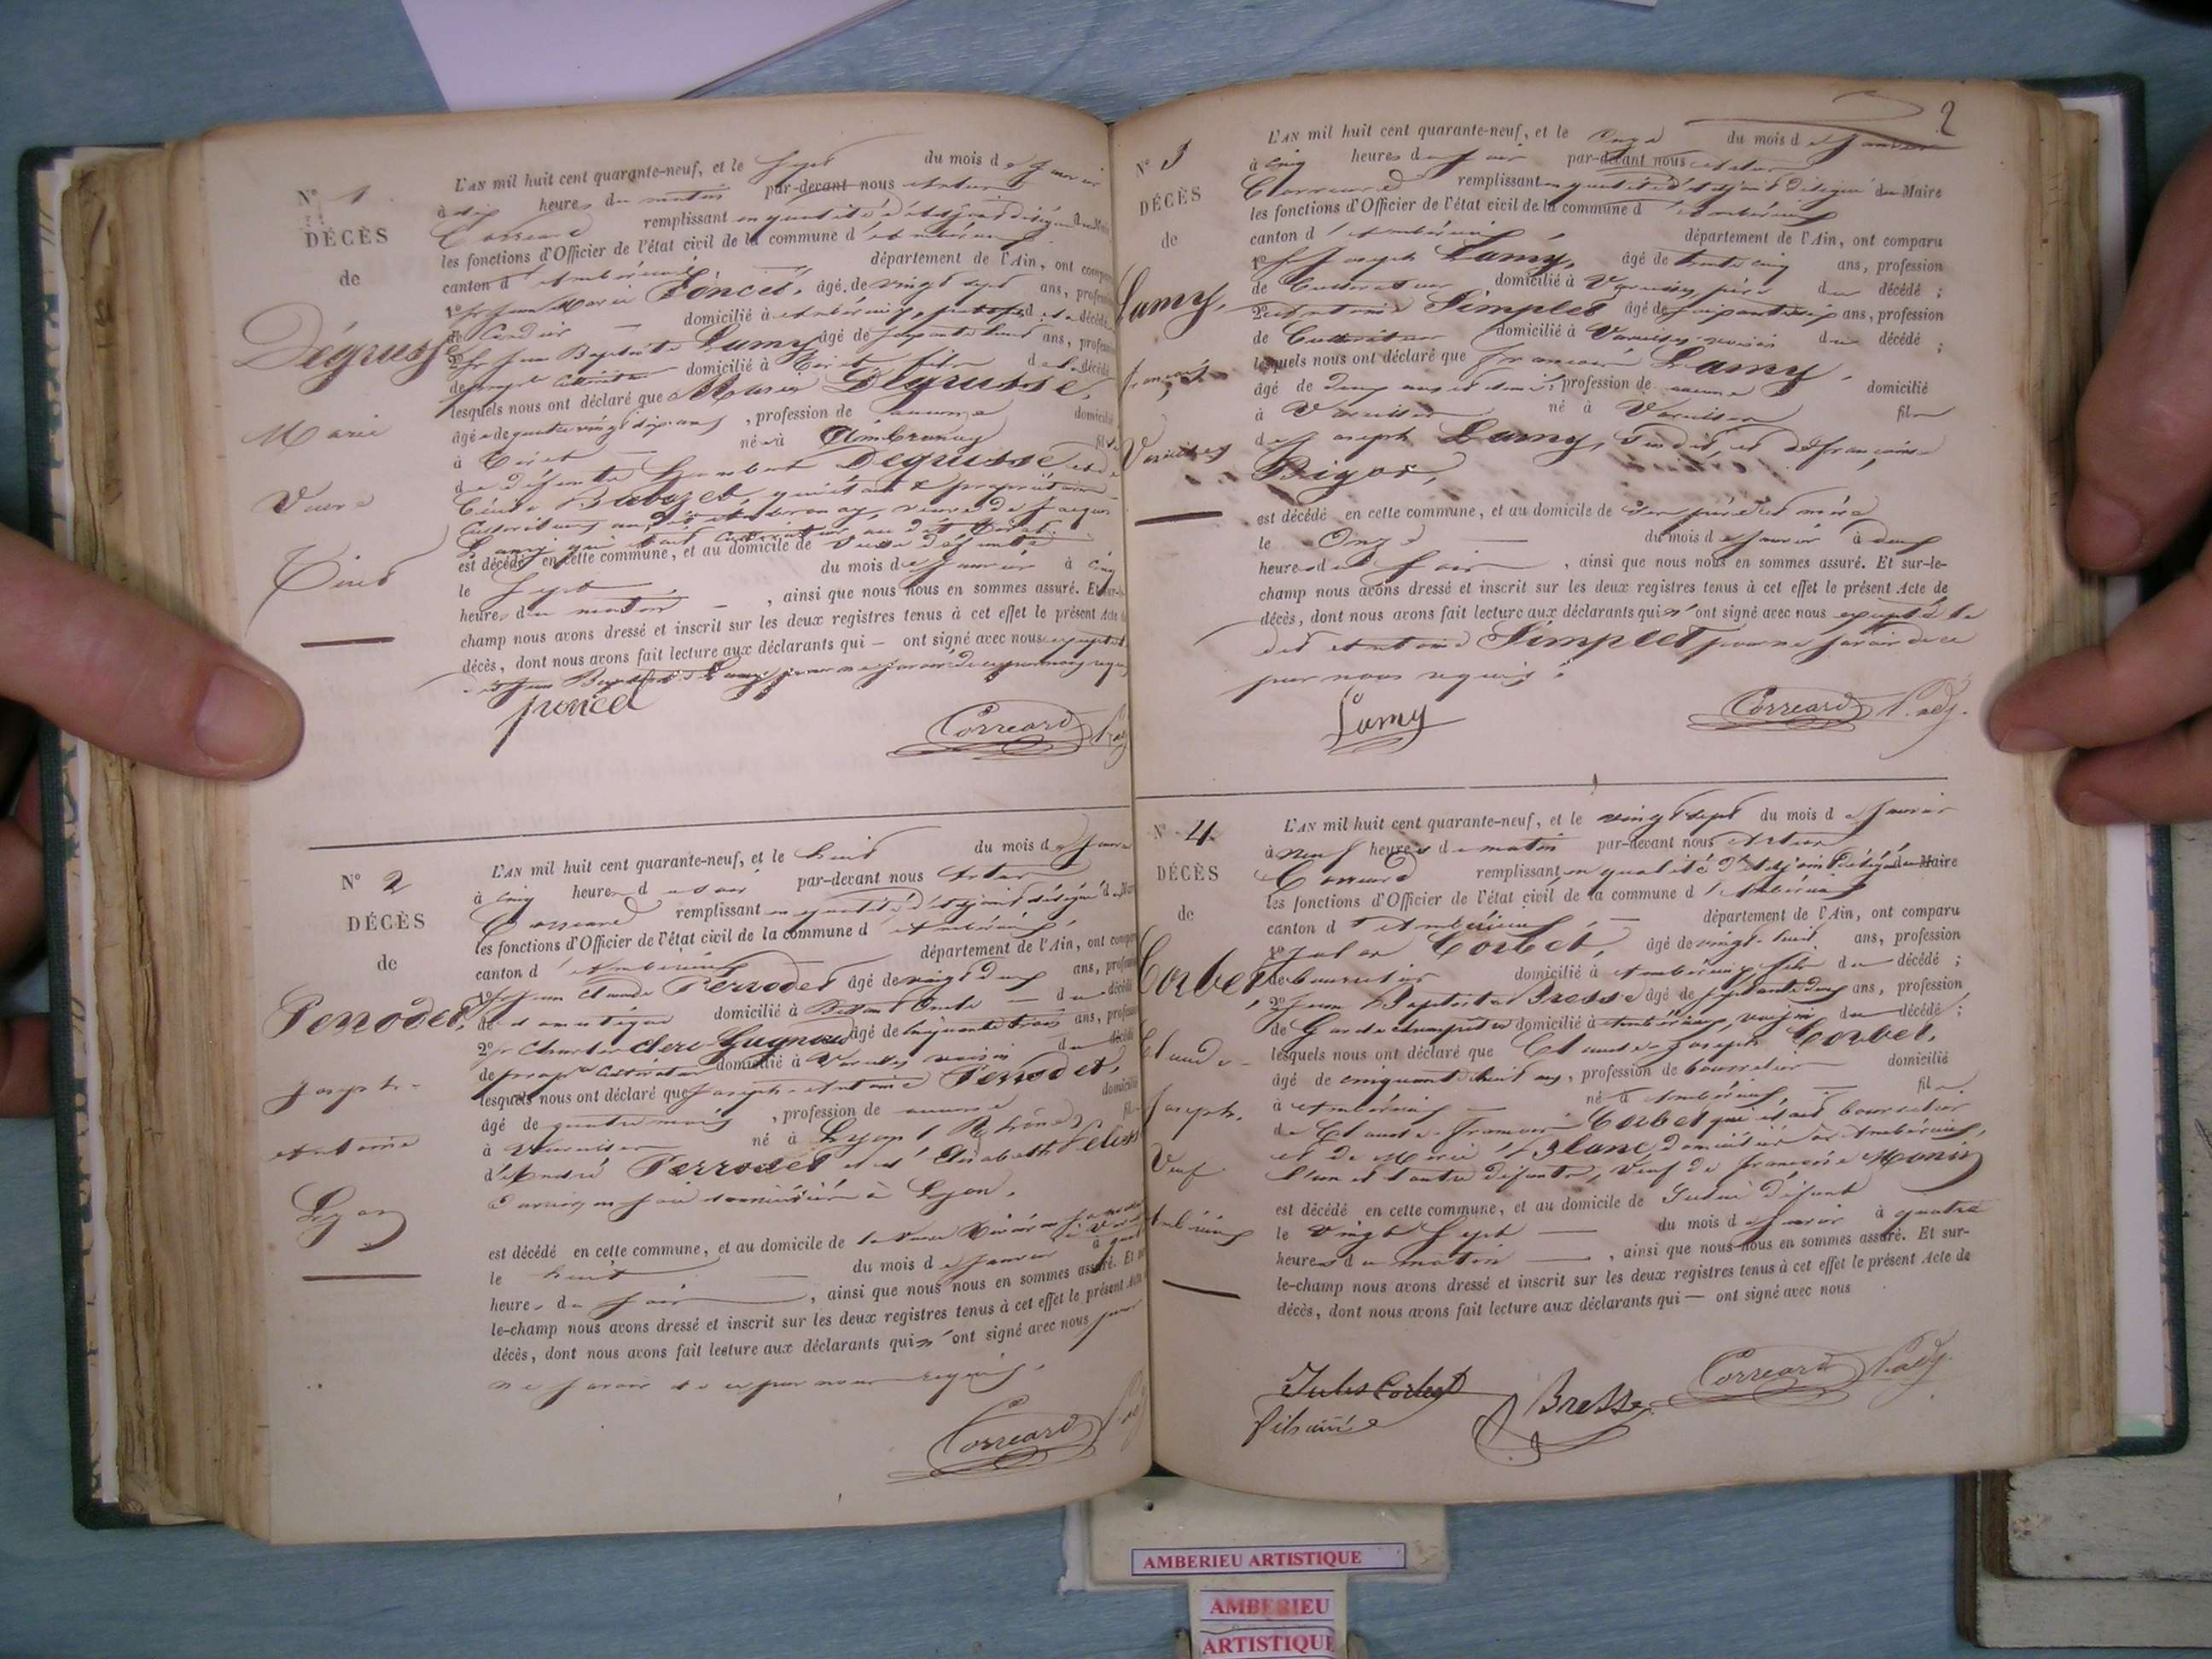 N° 1
DÉCÈS
de
Dégrusse
Marie
Veuve
Tiret
L'AN mil huit cent quarante-neuf, et le Sept du mois de Janvier
à dix heures du matin par-devant nous
Correard remplissant en qualité d'adjoint délégué du Maire
les fonctions d'Officier de l'état civil de la commune d'
canton d' département de l'Ain, ont
1° Sr Jean Marie Poncet, âgé de vingt sept ans,
de domicilié à Ambérieux, décédé
2° Sr Jean Baptiste Lamy âgé de soixante huit ans,
de domicilié à Tiret, fils de la décédée
lesquels nous ont déclaré que Marie Dégrusse,
âgée de quatre vingt dix ans, profession de aucune
à Tiret née à Ambronay fille
de défunts Humbert Dégrusse et de
veuve de Jacques
Lamy qui était cultivateur au dit Tiret.
est décédée en cette commune, et au domicile de
le Sept du mois de Janvier à cinq
heures du matin, ainsi que nous nous en sommes assuré. Et sur-le-
champ nous avons dressé et inscrit sur les deux registres tenus à cet effet le présent Acte de
décès, dont nous avons fait lecture aux déclarants qui — ont signé avec nous excepté
Jean Baptiste Lamy pour ne savoir de ce par nous requis
poncet
Correard
N° 2
DÉCÈS
de
Perrodet,
Joseph-
Antoine
Lyon
L'AN mil huit cent quarante-neuf, et le huit du mois de Janvier
à cinq heures du soir par-devant nous
Correard remplissant en qualité d'adjoint délégué
les fonctions d'Officier de l'état civil de la commune d'Ambérieux,
canton d'Ambérieux département de l'Ain, ont
1° Sr Jean Claude Perrodet âgé de vingt deux ans,
de domestique domicilié à oncle du décédé
2° Sr Charles Clerc âgé de cinquante trois ans,
de cultivateur domicilié à Vareilles voisin du décédé
lesquels nous ont déclaré que Joseph-Antoine Perrodet,
âgé de quatre mois, profession de aucune
à Vareilles né à Lyon (Rhône) fils
d'André Perrodet et d'Elisabeth
en soie domiciliés à Lyon.
est décédé en cette commune, et au domicile de la veuve
le huit du mois de Janvier à
heures du soir, ainsi que nous nous en sommes assuré. Et sur-
le-champ nous avons dressé et inscrit sur les deux registres tenus à cet effet le présent Acte
décès, dont nous avons fait lecture aux déclarants qui n'ont signé avec nous pour
ne savoir de ce par nous requis.
Correard
2
N° 3
DÉCÈS
de
Lamy,
françois
Vareilles
L'AN mil huit cent quarante-neuf, et le Onze du mois de Janvier
à cinq heures du soir par-devant nous
Correard remplissant en qualité d'adjoint délégué du Maire
les fonctions d'Officier de l'état civil de la commune d'Ambérieux
canton d'Ambérieux département de l'Ain, ont comparu
1° Sr Joseph Lamy, âgé de trente cinq ans, profession
de Cultivateur domicilié à Vareilles, père du décédé ;
2° Antoine Simplet âgé de ans, profession
de Cultivateur domicilié à Vareilles, voisin du décédé ;
lesquels nous ont déclaré que françois Lamy,
âgé de deux ans et demi, profession de aucune domicilié
à Vareilles né à Vareilles fils
de Joseph Lamy, susdit, et de françoise
Bigot,
est décédé en cette commune, et au domicile de ses père et mère
le Onze du mois de Janvier à deux
heures du soir, ainsi que nous nous en sommes assuré. Et sur-le-
champ nous avons dressé et inscrit sur les deux registres tenus à cet effet le présent Acte de
décès, dont nous avons fait lecture aux déclarants qui ont signé avec nous excepté le
dit Antoine Simplet pour ne savoir de ce
par nous requis.
Lamy
Correard P. adj.
N° 4
DÉCÈS
de
Corbet,
Claude-
Joseph,
Veuf
Ambérieux
L'AN mil huit cent quarante-neuf, et le vingt sept du mois de Janvier
à neuf heures du matin par-devant nous
Correard remplissant en qualité d'adjoint délégué du Maire
les fonctions d'Officier de l'état civil de la commune d'Ambérieux
canton d'Ambérieux département de l'Ain, ont comparu
1° Jules Corbet, âgé de vingt-huit ans, profession
de bourrelier domicilié à Ambérieux, fils du décédé ;
2° Jean Baptiste Bresse âgé de ans, profession
de Garde champêtre domicilié à Ambérieux, voisin du décédé ;
lesquels nous ont déclaré que Claude-Joseph Corbet,
âgé de cinquante huit ans, profession de bourrelier domicilié
à Ambérieux né à Ambérieux, fils
de Claude-françois Corbet qui était bourrelier
et de Marie Blanc, domiciliés à Ambérieux,
l'un et l'autre défunts, veuf de françoise Monin
est décédé en cette commune, et au domicile de défunt
le vingt Sept du mois de Janvier à quatre
heures du matin, ainsi que nous nous en sommes assuré. Et sur-
le-champ nous avons dressé et inscrit sur les deux registres tenus à cet effet le présent Acte de
décès, dont nous avons fait lecture aux déclarants qui — ont signé avec nous
Jules Corbet
fils ainé
Bresse
Correard P. adj.
AMBERIEU ARTISTIQUE
AMBERIEU
ARTISTIQUE